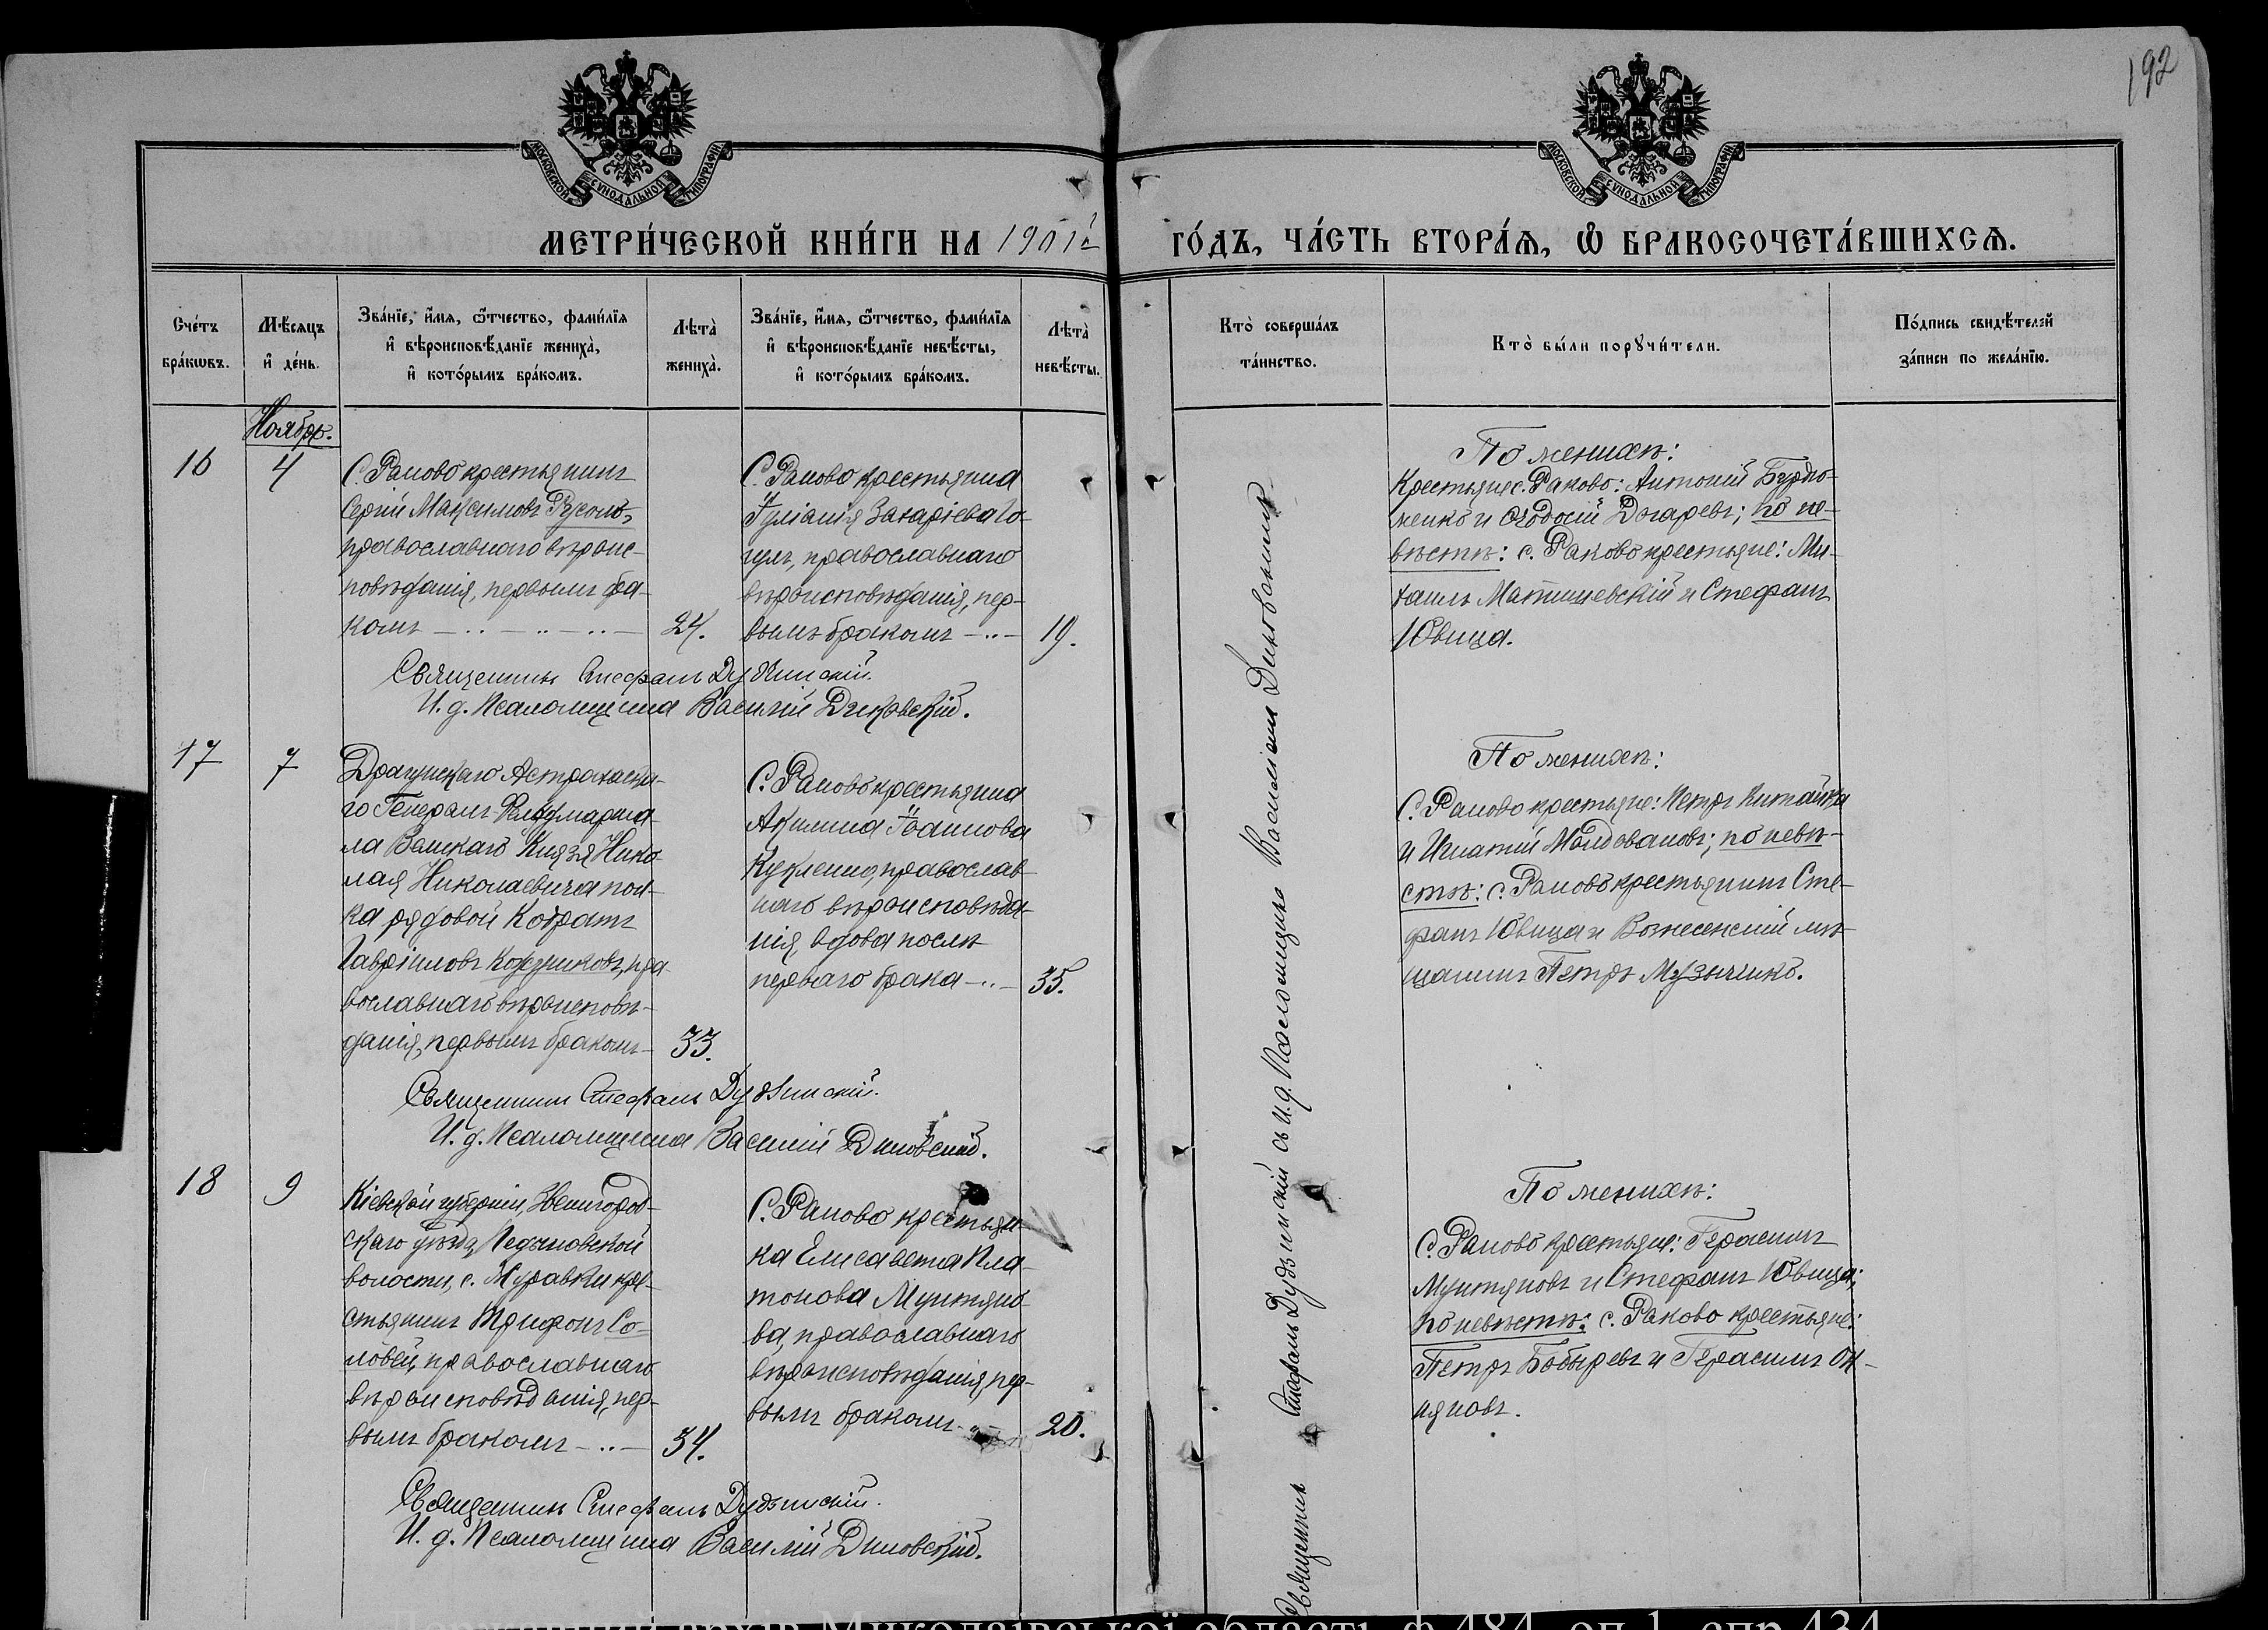 192
МОСКОВСКОЙ СѴНОДАЛЬНОЙ ТИПОГРАФІИ
МОСКОВСКОЙ СѴНОДАЛЬНОЙ ТИПОГРАФІИ
МЕТРИ́ЧЕСКОЙ КНИ́ГИ НА 1901й ГО́ДЪ, ЧА́СТЬ ВТОРА́Я, Ѽ БРАКОСОЧЕТА́ВШИХСЯ.
Сче́тъ бра́кωвъ.
Мѣ́сяцъ и҆ де́нь.
Зва́нїе, и҆́мя, ѻ҆́тчество, фами́лїя и҆ вѣроисповѣ́данїе жениха̀, и҆ кото́рымъ бра́комъ.
Лѣта̀ жениха̀.
Зва́нїе, и҆́мя, ѻ҆́тчество, фами́лїя и҆ вѣроисповѣ́данїе невѣ́сты, и҆ кото́рымъ бра́комъ.
Лѣта̀ невѣ́сты.
Кто̀ соверша́лъ та́инство.
Кто̀ бы́ли порꙋчи́тели.
По́дпись свидѣ́телей за́писи по жела́нїю.
Ноябрь.
16
4
С. Раково крестьянинъ
Сергій Максимовъ Русолъ,
православнаго вѣроис-
повѣданія, первымъ бра-
комъ
24.
С. Раково крестьянка
Іуліанія Захаріева Го-
православнаго
вѣроисповѣданія, пер-
вымъ бракомъ
19.
По женихѣ:
Крестьяне с. Раково: Антоній Бурдо-
и Ѳеодосій Догаревъ; по не-
вѣстѣ: с. Раково крестьяне: Ми-
хаилъ Матишевскій и Стефанъ
Ювица.
Священникъ Стефанъ Дудзинскій.
И. д. Псаломщика Василій Диковскій.
17
7
Драгунскаго Астраханска-
го Генералъ-Фельдмарша-
ла Великаго Князя Нико-
лая Николаевича пол-
ка рядовой Кодратъ
Гавріиловъ Кожуриковъ, пра-
вославнаго вѣроисповѣ-
данія, первымъ бракомъ
33.
С. Раково крестьянка
Акилина Іоаннова
православ-
наго вѣроисповѣда-
нія, вдова послѣ
перваго брака
35.
По женихѣ:
С. Раково крестьяне: Петръ Китайка
и Игнатій Молдовановъ; по невѣ-
стѣ: с. Раково крестьянинъ Сте-
фанъ Ювица и Вознесенскій мѣ-
щанинъ Петръ Музычко.
Священникъ Стефанъ Дудзинскій.
И. д. Псаломщика Василій Диковскій.
18
9
Кіевской губерніи, Звенигород-
скаго уѣзда,
волости, с. Муравки кре-
стьянинъ Трифонъ Со-
ловей, православнаго
вѣроисповѣданія, пер-
вымъ бракомъ
34.
С. Раково крестьян-
ка Елисавета Пла-
тонова Мунтяно-
ва, православнаго
вѣроисповѣданія, пер-
вымъ бракомъ
20.
По женихѣ:
С. Раково крестьяне: Герасимъ
Мунтяновъ и Стефанъ Ювица;
по невѣстѣ: с. Раково крестьяне:
Петръ Бобыревъ и Герасимъ
Священникъ Стефанъ Дудзинскій.
И. д. Псаломщика Василій Диковскій.
Священникъ Стефанъ Дудзинскій съ и. д. Псаломщика Василіемъ Диковскимъ
Державний архів Миколаївської області, ф.484, оп.1, спр.434